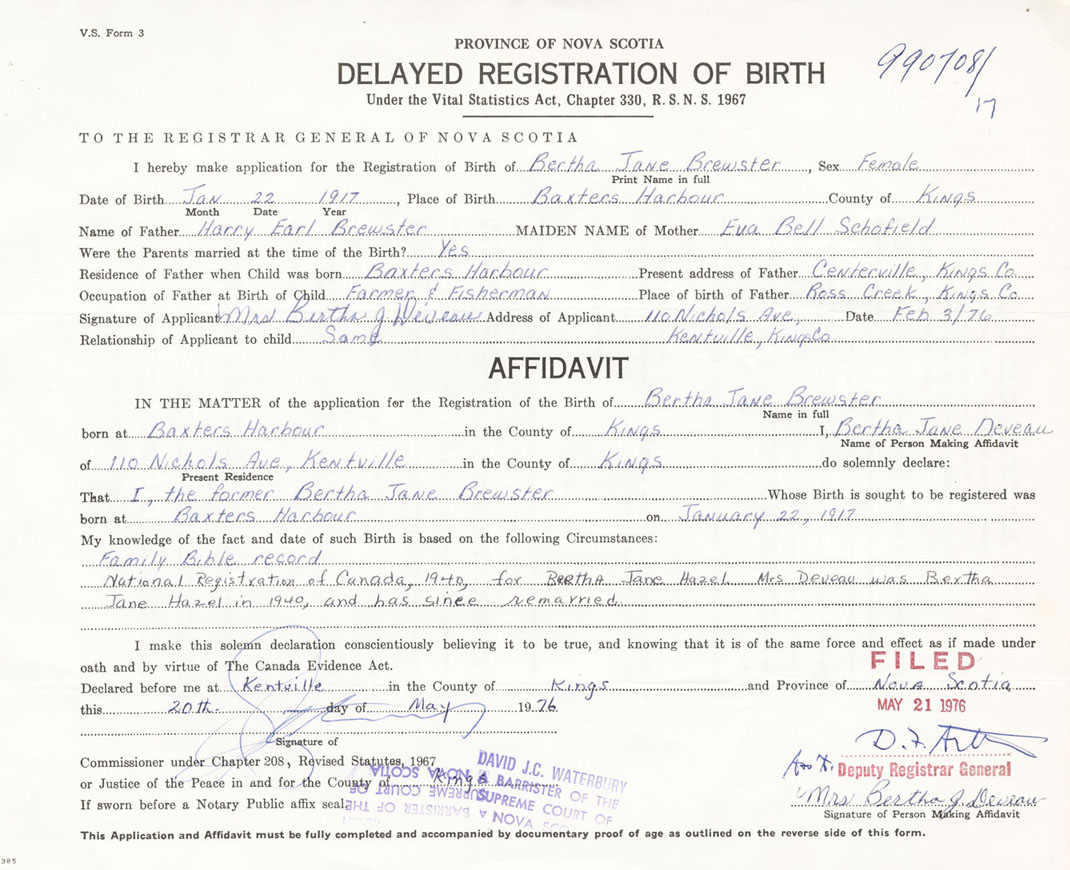 V.S. Form 3
PROVINCE OF NOVA SCOTIA
DELAYED REGISTRATION OF BIRTH
Under the Vital Statistics Act, Chapter 330, R.S.N.S. 1967
990708/
17
TO THE REGISTRAR GENERAL OF NOVA SCOTIA
I hereby make application for the Registration of Birth of Bertha Jane Brewster, Sex Female
Print Name in full
Date of Birth Jan 22 1917, Place of Birth Baxters Harbour County of Kings
Month Date Year
Name of Father Harry Earl Brewster MAIDEN NAME of Mother Eva Bell Schofield
Were the Parents married at the time of the Birth? Yes
Residence of Father when Child was born Baxters Harbour Present address of Father Centerville, Kings Co.
Occupation of Father at Birth of Child Farmer & Fisherman Place of birth of Father Ross Creek, Kings Co.
Signature of Applicant Mrs Bertha J Deveau Address of Applicant 110 Nichols Ave, Date Feb 3/76
Relationship of Applicant to child Same Kentville, Kings Co
AFFIDAVIT
IN THE MATTER of the application for the Registration of the Birth of Bertha Jane Brewster
Name in full
born at Baxters Harbour in the County of Kings I, Bertha Jane Deveau
Name of Person Making Affidavit
of 110 Nichols Ave, Kentville in the County of Kings do solemnly declare:
Present Residence
That I, the former Bertha Jane Brewster Whose Birth is sought to be registered was
born at Baxters Harbour on January 22, 1917
My knowledge of the fact and date of such Birth is based on the following Circumstances:
Family Bible record
National Registration of Canada, 1940, for Bertha Jane Hazel. Mrs Deveau was Bertha
Jane Hazel in 1940, and has since remarried.
I make this solemn declaration conscientiously believing it to be true, and knowing that it is of the same force and effect as if made under
oath and by virtue of The Canada Evidence Act.
FILED
Declared before me at Kentville in the County of Kings and Province of Nova Scotia
this 20th. day of May 1976
MAY 21 1976
Signature of
Commissioner under Chapter 208, Revised Statutes, 1967
or Justice of the Peace in and for the County of Kings
If sworn before a Notary Public affix seal.
DAVID J.C. WATERBURY
A BARRISTER OF THE
SUPREME COURT OF
NOVA SCOTIA
Deputy Registrar General
Mrs Bertha J Deveau
Signature of Person Making Affidavit
This Application and Affidavit must be fully completed and accompanied by documentary proof of age as outlined on the reverse side of this form.
385